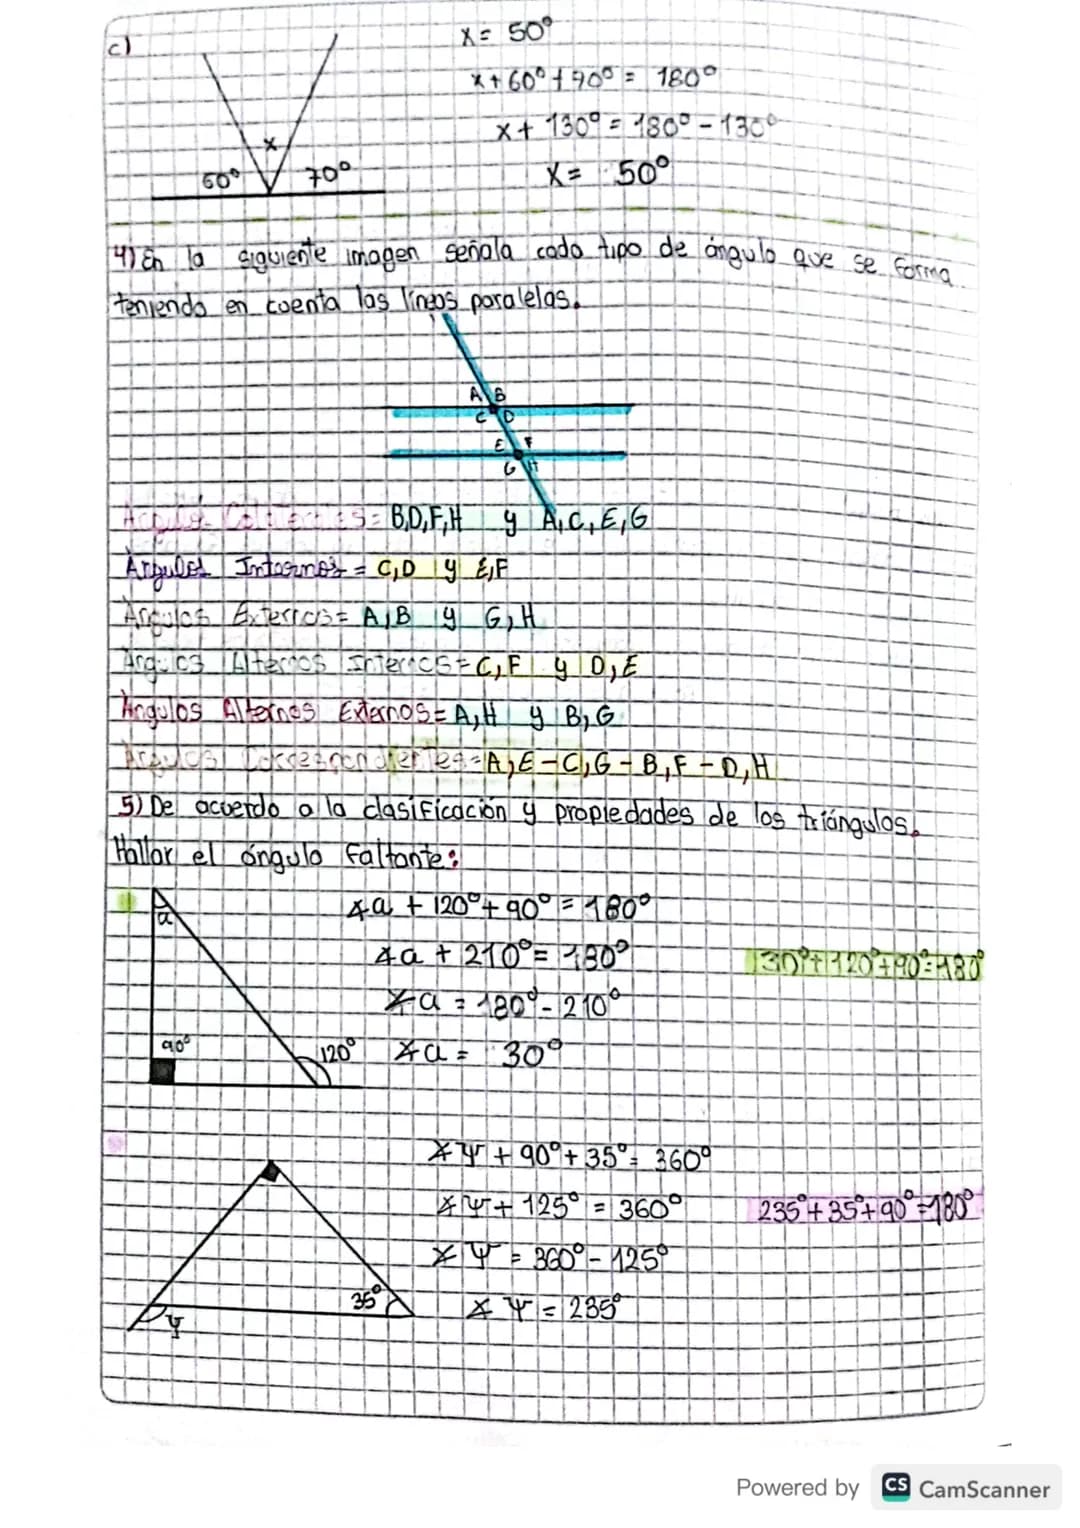 c)
x = 50°
x + 60° + 70° = 180°
x + 130° = 180° - 130°
x = 50°
x
60° 70°
4) En la siguiente imagen señala cada tipo de ángulo que se forma
teniendo en cuenta las líneas paralelas.
A B
C D
E F
G H
Angulos Colaterales = B,D,F,H y A,C,E,G
Angulos Internos = C,D y E,F
Angulos Externos = A,B y G,H
Angulos Alternos Internos = C,F y D,E
Angulos Alternos Externos = A,H y B,G
Angulos Correspondientes = A,E - C,G - B,F - D,H
5) De acuerdo a la clasificación y propiedades de los triángulos.
Hallar el ángulo faltante:
a
90°
120°
∡a + 120° + 90° = 180°
∡a + 210° = 180°
∡a = 180° - 210°
∡a = 30°
30° + 120° + 90° = 180°
35°
Ψ
∡Ψ + 90° + 35° = 360°
∡Ψ + 125° = 360°
∡Ψ = 360° - 125°
∡Ψ = 235°
235° + 35° + 90° = 180°
Powered by CS CamScanner